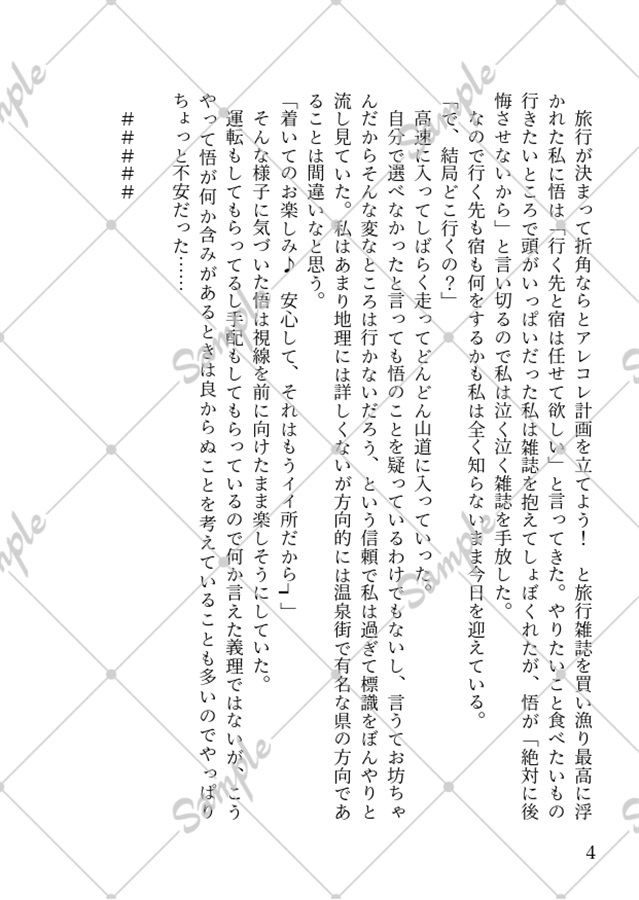 旅行が決まって折角ならとアレコレ計画を立てよう！　と旅行雑誌を買い漁り最高に浮
かれた私に悟は「行く先と宿は任せて欲しい」と言ってきた。やりたいこと食べたいもの
行きたいところで頭がいっぱいだった私は雑誌を抱えてしょぼくれたが、悟が「絶対に後
悔させないから」と言い切るので私は泣く泣く雑誌を手放した。
　なので行く先も宿も何をするかも私は全く知らないまま今日を迎えている。
「で、結局どこ行くの？」
　高速に入ってしばらく走ってどんどん山道に入っていった。
　自分で選べなかったと言っても悟のことを疑っているわけでもないし、言うてお坊ちゃ
んだからそんな変なところは行かないだろう、という信頼で私は過ぎて標識をぼんやりと
流し見ていた。私はあまり地理には詳しくないが方向的には温泉街で有名な県の方向であ
ることは間違いなと思う。
「着いてのお楽しみ♪　安心して、それはもうイイ所だから┛」
　そんな様子に気づいた悟は視線を前に向けたまま楽しそうにしていた。
　運転もしてもらってるし手配もしてもらっているので何か言えた義理ではないが、こう
やって悟が何か含みがあるときは良からぬことを考えていることも多いのでやっぱり
ちょっと不安だった……
＃＃＃＃＃
4
Sample
Sample
Sample
Sample
Sample
Sample